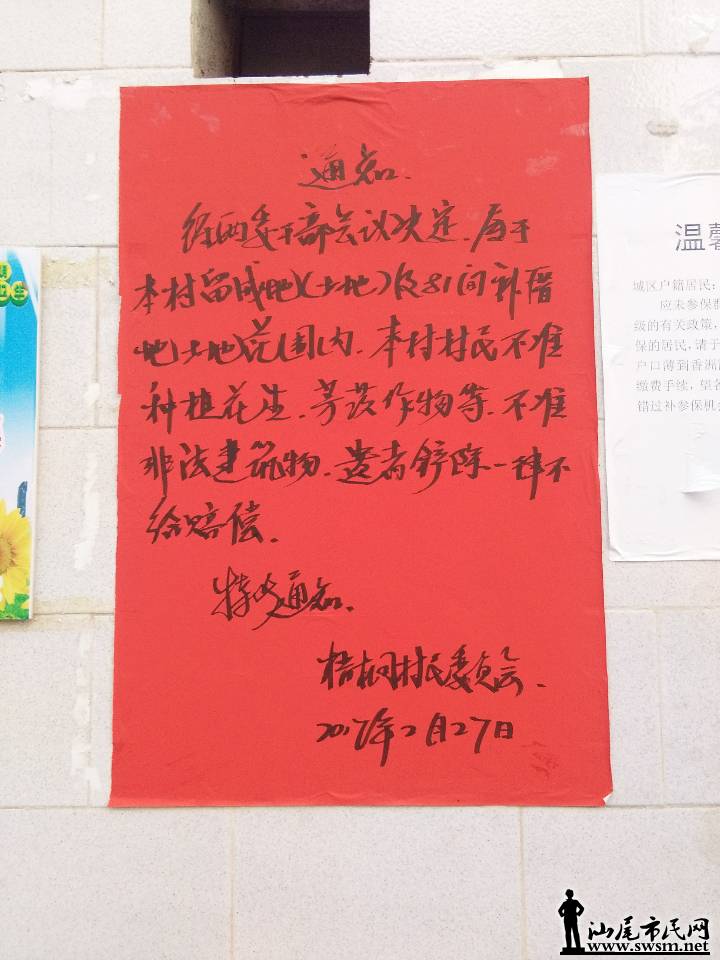 通知.
经两委干部会议决定.属于
本村留成地(土地)及81间补厝
地土地范围内.本村村民不准
种植花生.等农作物等.不准
非法建筑物.违者铲除一律不
给赔偿.
特此通知.
梧桐村民委员会.
2017年2月27日
温馨
城区户籍居民:
应未参保
级的有关政策,
保的居民,请于
户口薄到香洲
缴费手续,望各
错过补参保机会
汕尾市民网
www.swsm.net